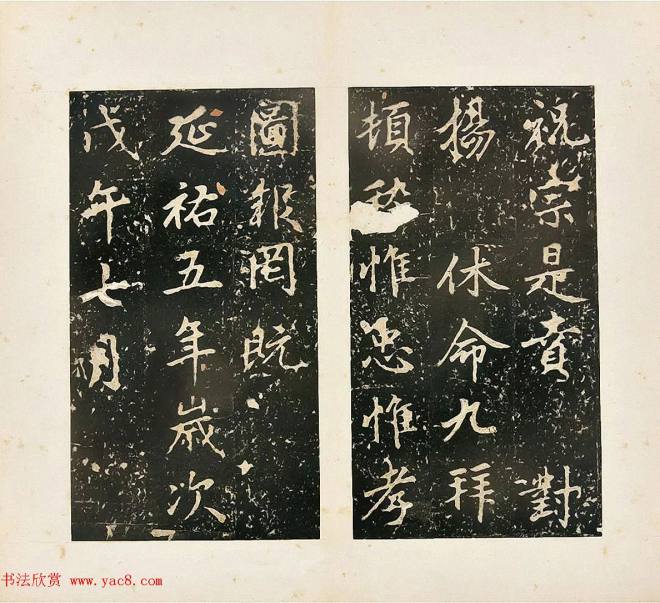 祝宗是賁 對
揚 休命九拜
頓 惟忠惟孝
圖報罔既
延祐五年歲次
戊午七月
书法欣赏 www.yac8.com